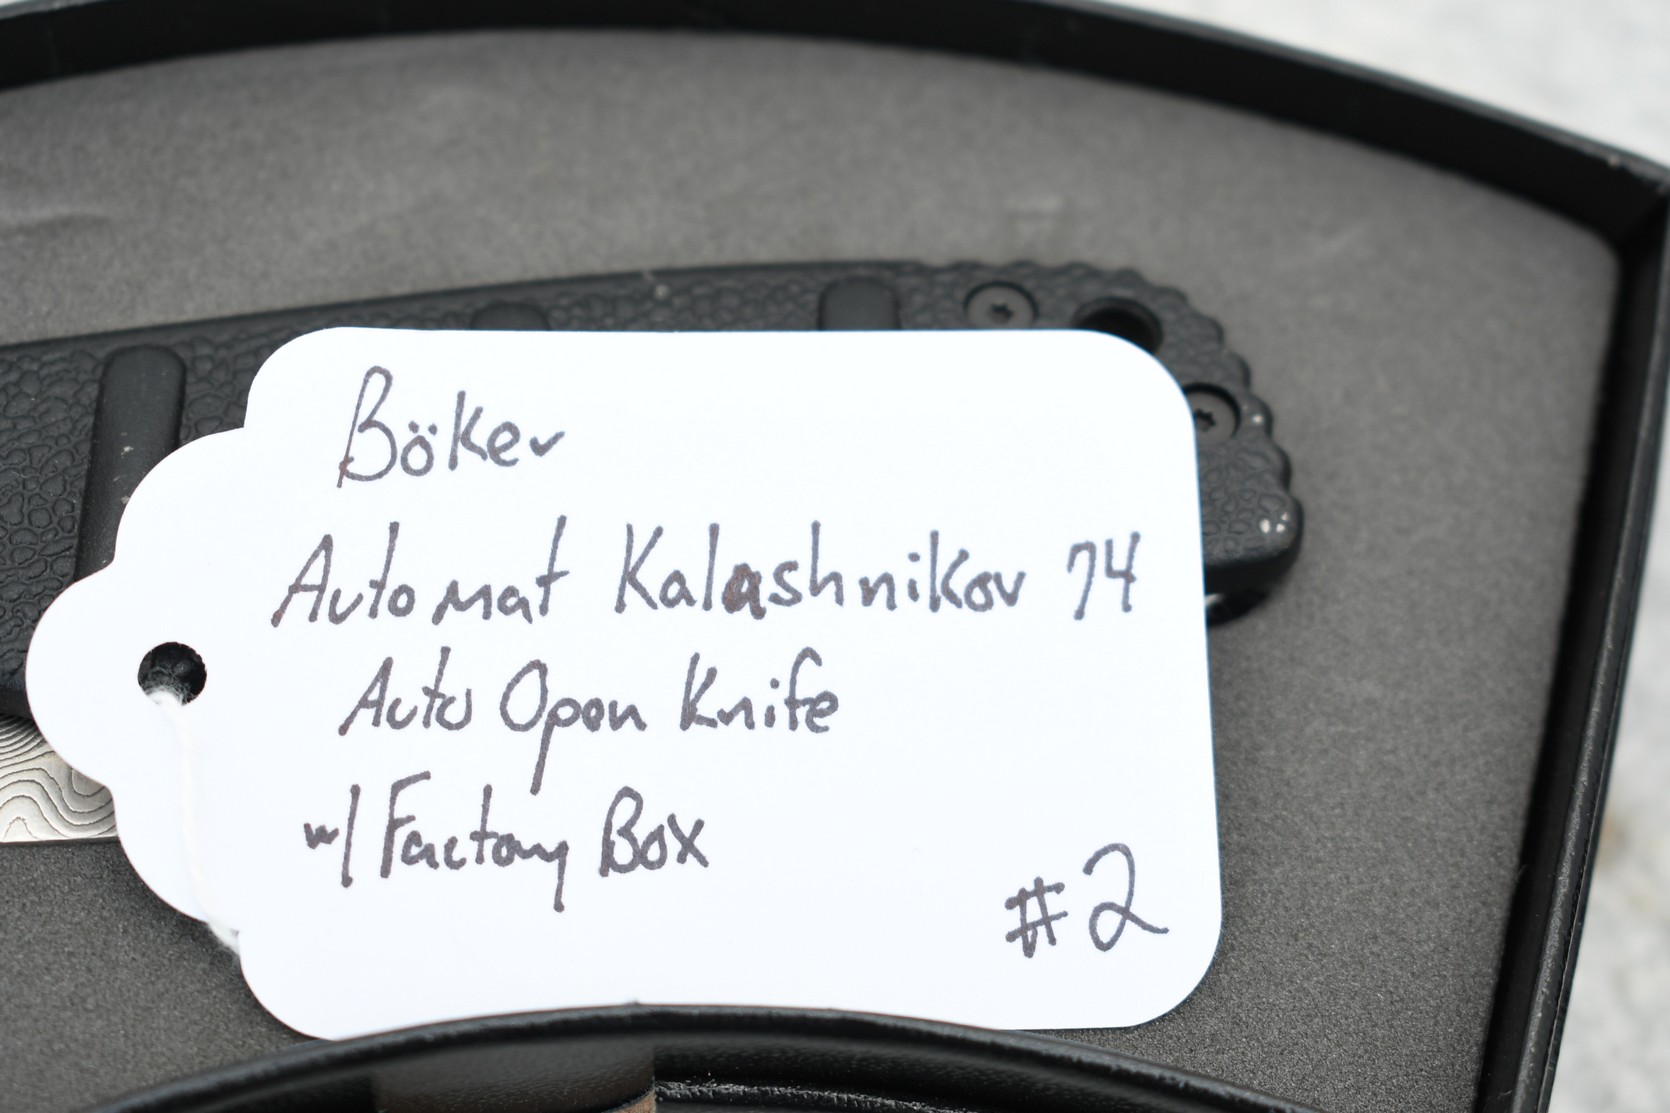 Böker
Automat Kalashnikov 74
Auto Open Knife
w/ Factory Box
#2